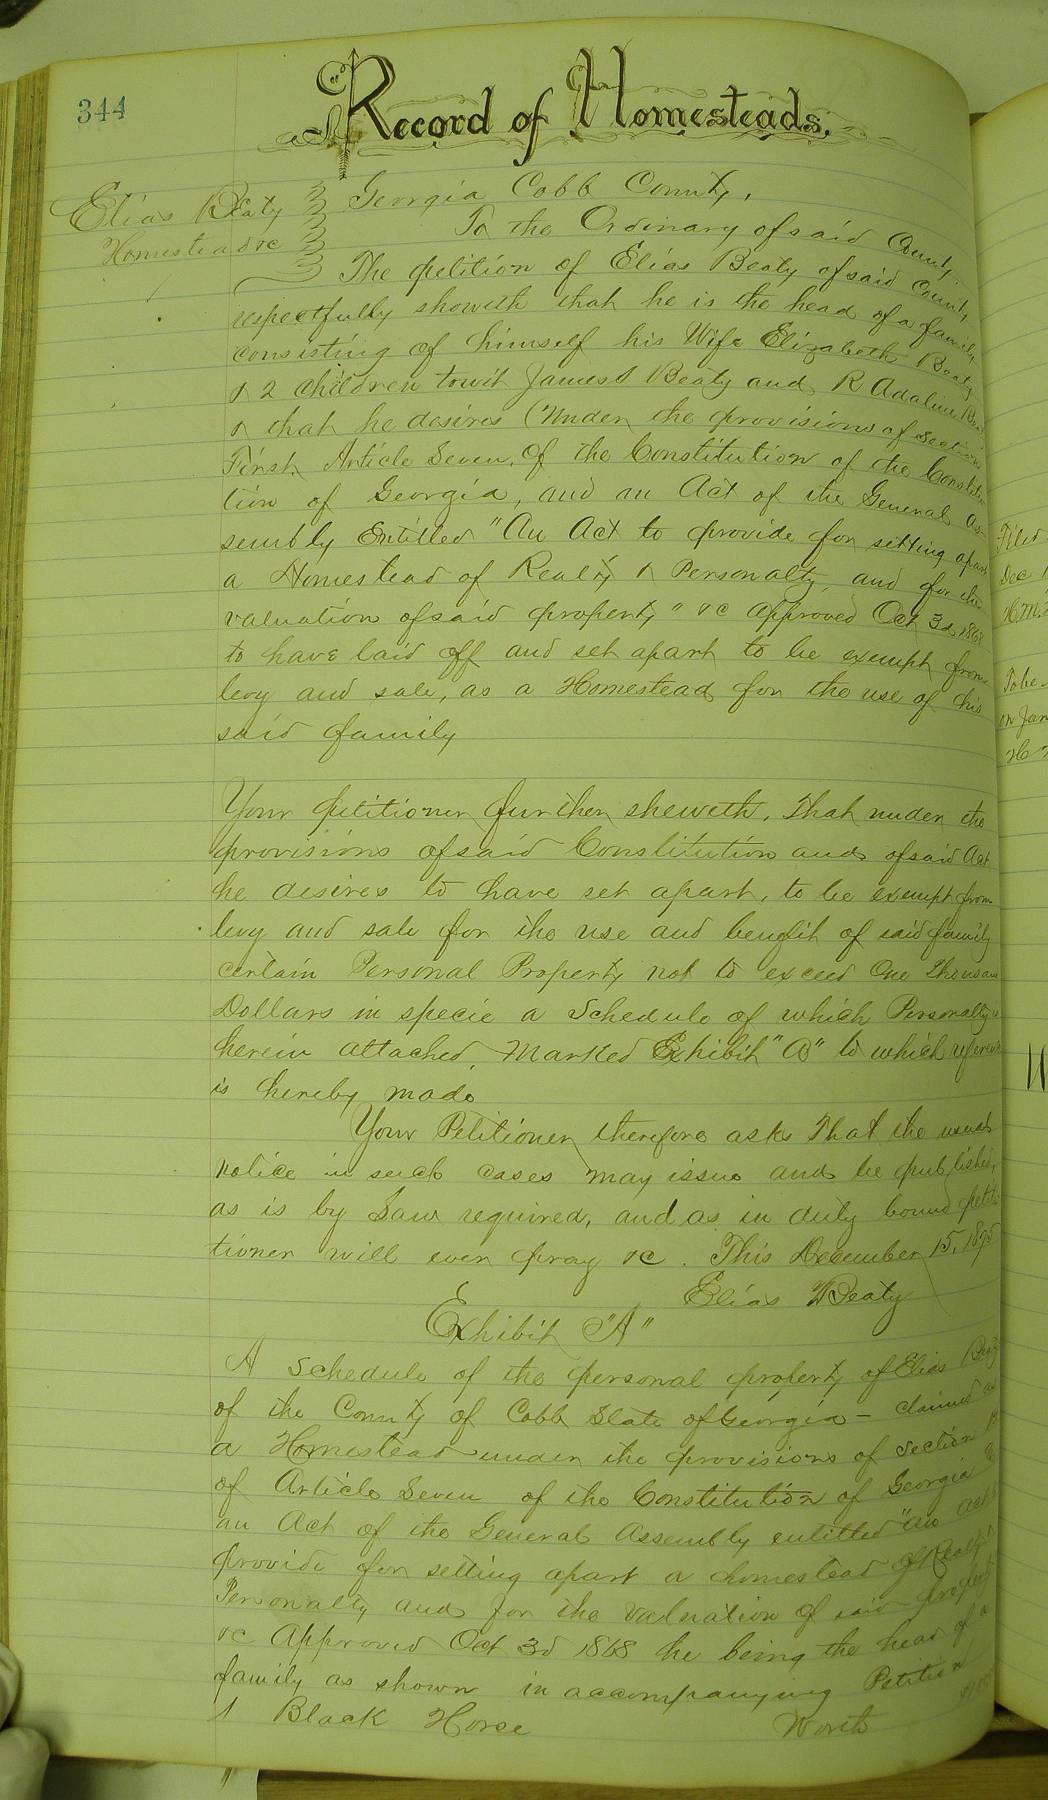 344
Record of Homesteads.
Elias Beaty
Homestead &c
Georgia Cobb County,
To the Ordinary of said County
The petition of Elias Beaty of said County,
respectfully showeth that he is the head of a family
consisting of himself his Wife Elizabeth Beaty
& 2 children towit James Beaty and R Adaline
& that he desires (Under the provisions of Section
First, Article Seven, Of the Constitution of the Constitu
tion of Georgia, and an Act of the General As-
sembly Entitled "An Act to provide for setting apart
a Homestead of Realty & Personalty, and for the
valuation of said property" &c Approved Oct 3d 1868
to have laid off and set apart to be exempt from
levy and sale, as a Homestead for the use of his
said family
Your petitioner further sheweth, That under the
provisions of said Constitution and of said Act
he desires to have set apart, to be exempt from
levy and sale for the use and benefit of said family
certain Personal Property not to exceed One Thousand
Dollars in specie a Schedule of which Personalty is
herein attached, Marked Exhibit "A" to which reference
is hereby made
Your Petitioner therefore asks That the usual
notice in such cases may issue and be published,
as is by Law required, and as in duty bound peti-
tioner will ever pray &c. This December 15, 1875
Elias Beaty
Exhibit "A"
A Schedule of the personal property of Elias Beaty
of the County of Cobb State of Georgia - claimed as
a Homestead under the provisions of Section 1st
of Article Seven of the Constitution of Georgia &
an Act of the General Assembly entitled "An Act to
provide for setting apart a homestead of Realty &
Personalty and for the valuation of said property
&c Approved Oct 3d 1868 he being the head of a
family as shown in accompanying Petition
1 Black Horse Worth
Filed
Dec 1
H.M.
To be
on Jan